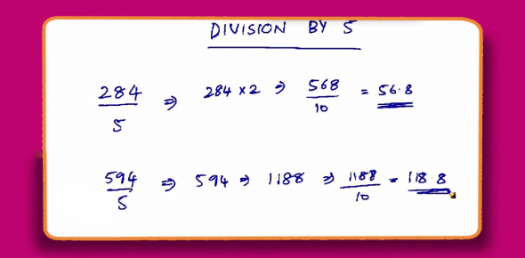 DIVISION BY 5
284/5 ⇒ 284 × 2 ⇒ 568/10 = 56.8
594/5 ⇒ 594 ⇒ 1188 ⇒ 1188/10 = 118 8